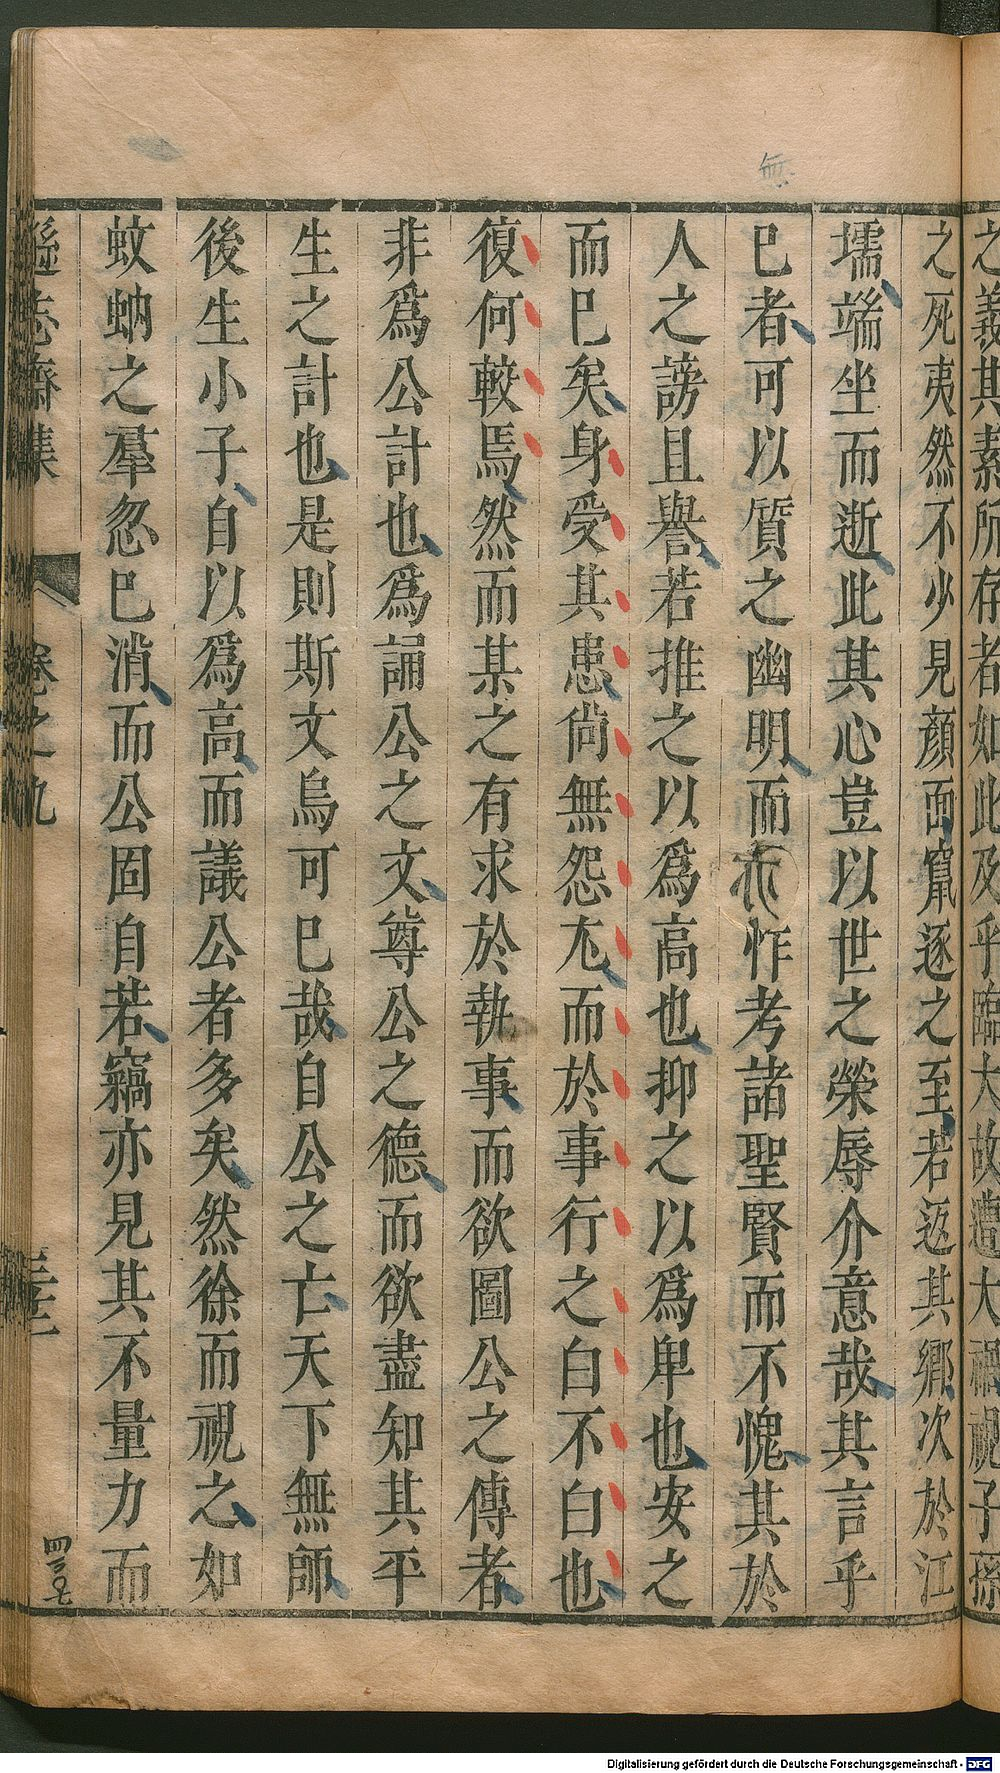 之義其素所存者如此及乎臨大故遭大禍視子孫
之死夷然不少見顔面竄逐之至若返其鄉次於江
壖端坐而逝此其心豈以世之榮辱介意哉其言乎
已者可以質之幽明而不怍考諸聖賢而不愧其於
人之謗且譽若推之以爲高也抑之以爲卑也安之
而已矣身受其患尙無怨尤而於事行之白不白也
復何較焉然而某之有求於執事而欲圖公之傳者
非爲公計也爲誦公之文尊公之德而欲盡知其平
生之計也是則斯文烏可已哉自公之亡天下無師
後生小子自以爲高而議公者多矣然徐而視之如
蚊蚋之羣忽已消而公固自若竊亦見其不量力而
遜志齋集 卷之九
四三〇七
無
Digitalisierung gefördert durch die Deutsche Forschungsgemeinschaft - DFG